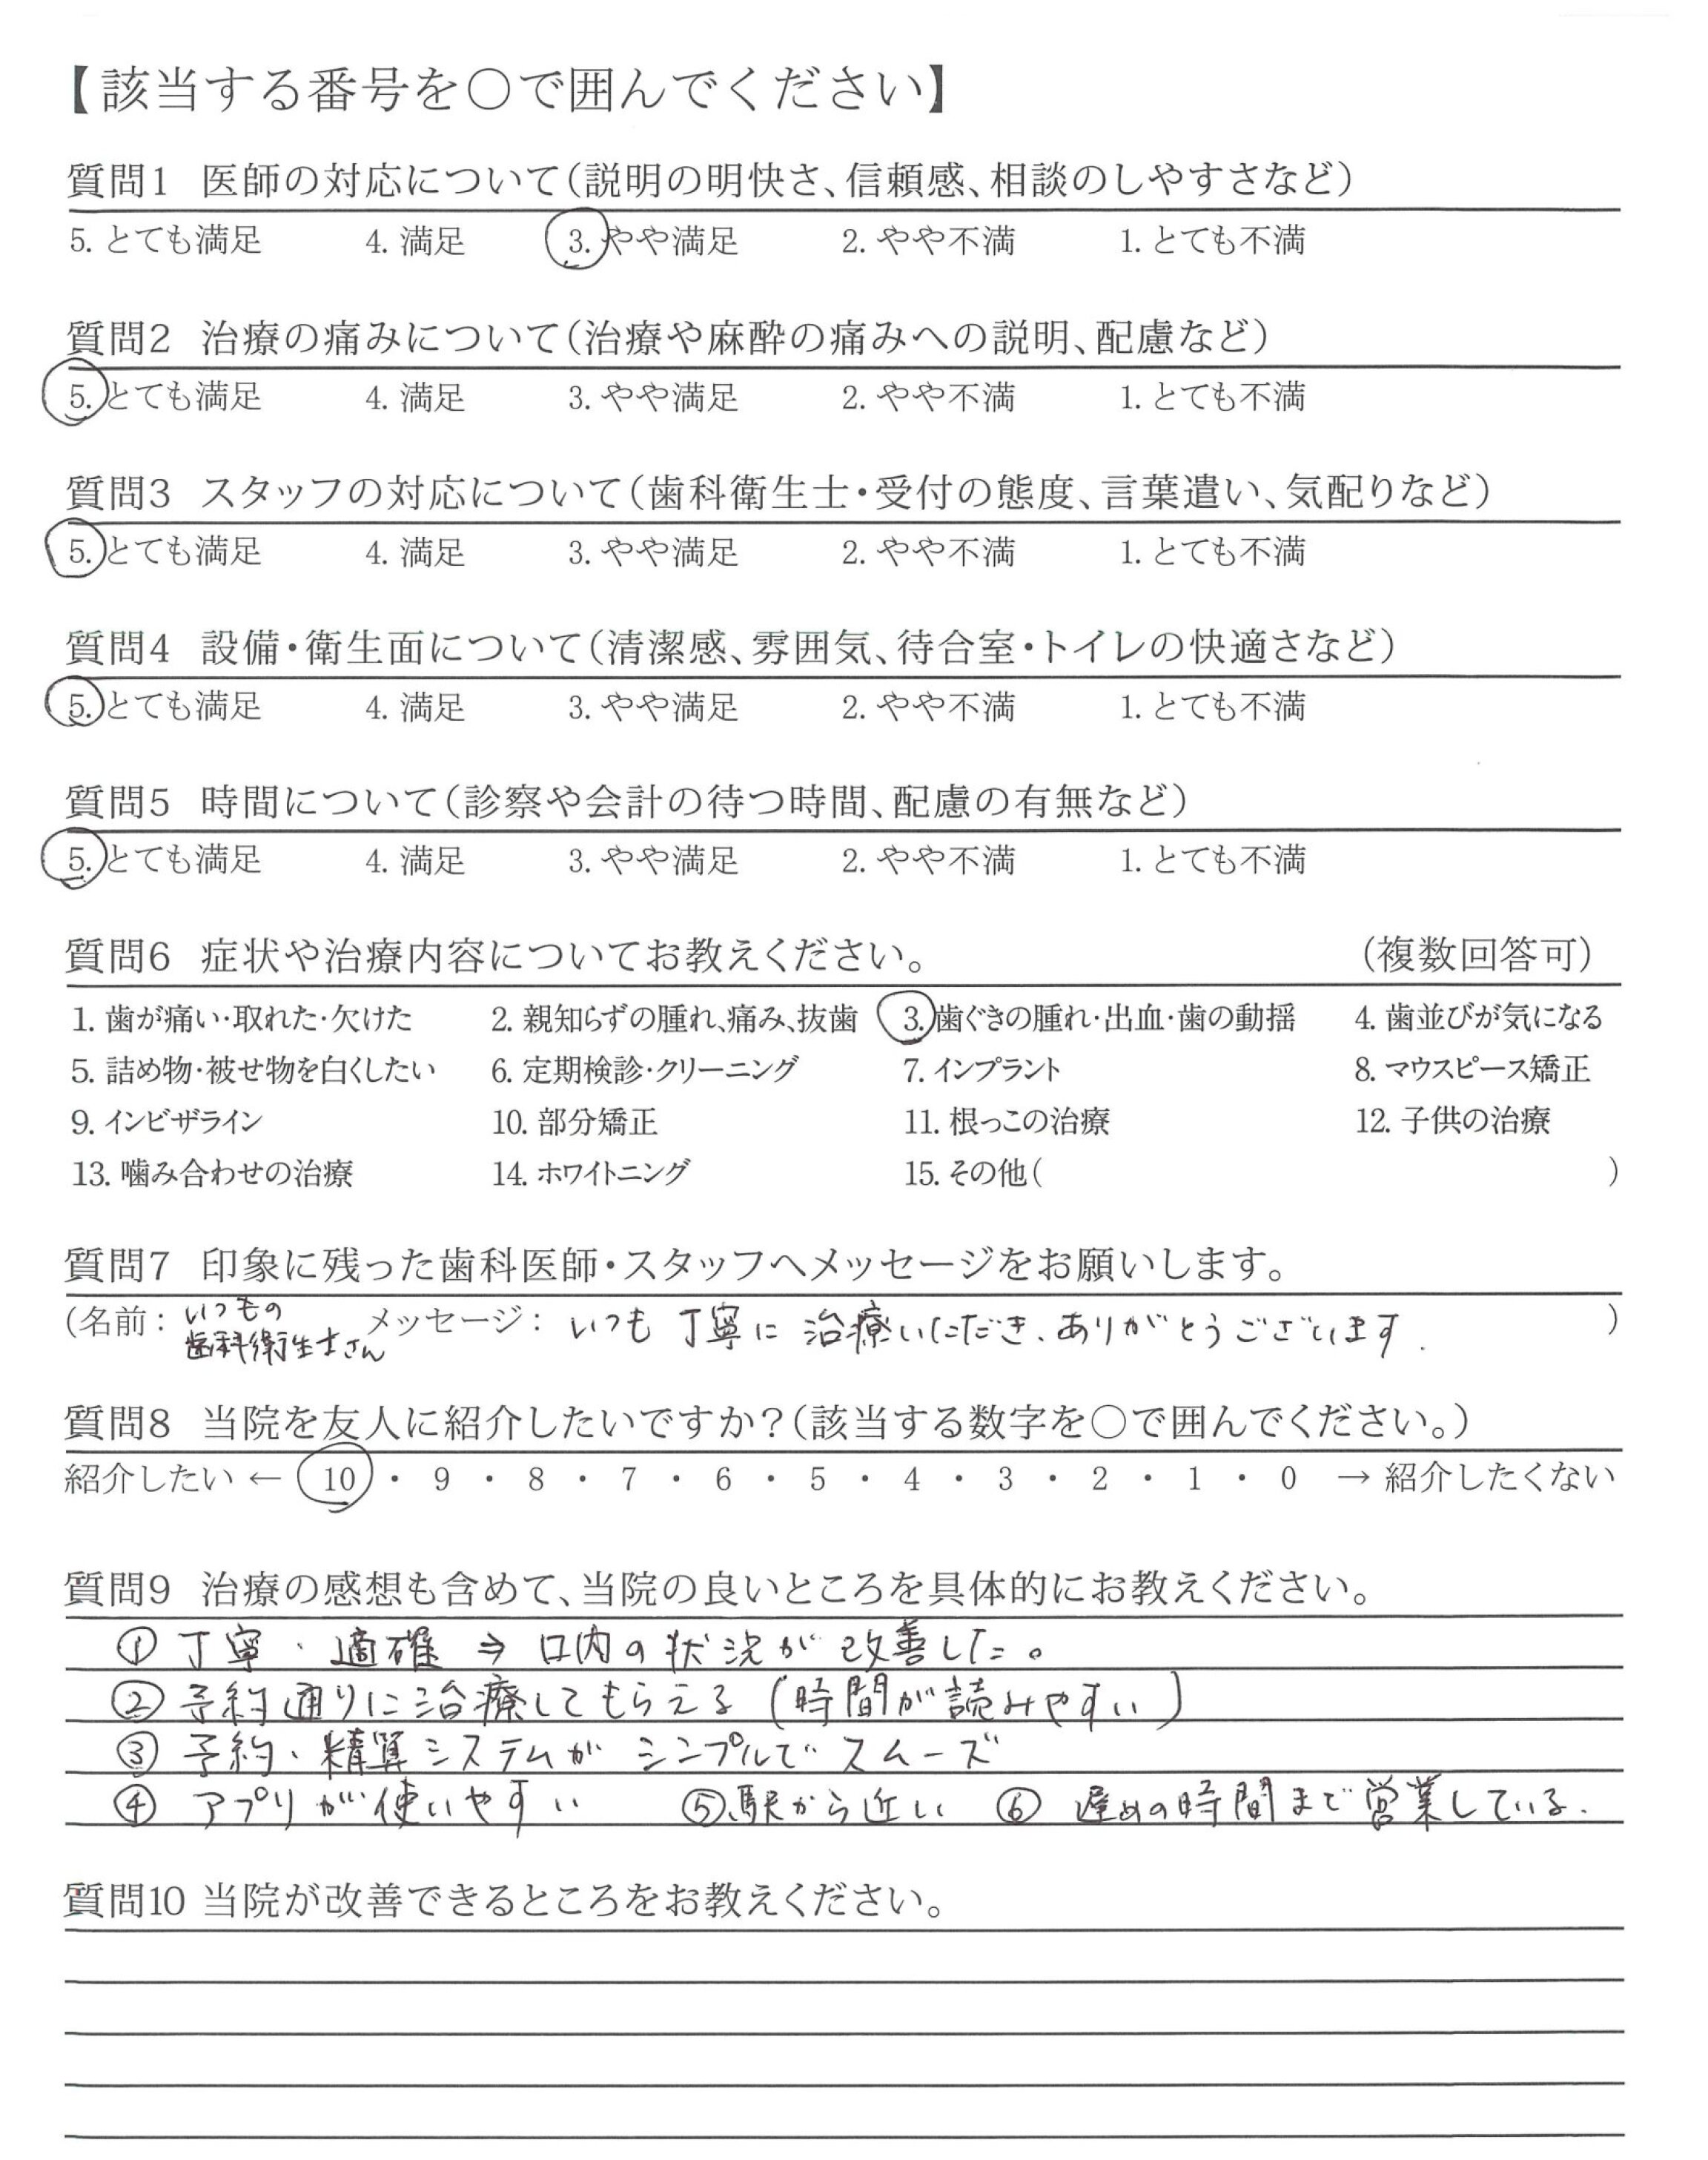 【該当する番号を○で囲んでください】
質問1 医師の対応について(説明の明快さ、信頼感、相談のしやすさなど)
5. とても満足 4. 満足 3. やや満足 2. やや不満 1. とても不満
質問2 治療の痛みについて(治療や麻酔の痛みへの説明、配慮など)
5. とても満足 4. 満足 3. やや満足 2. やや不満 1. とても不満
質問3 スタッフの対応について(歯科衛生士・受付の態度、言葉遣い、気配りなど)
5. とても満足 4. 満足 3. やや満足 2. やや不満 1. とても不満
質問4 設備・衛生面について(清潔感、雰囲気、待合室・トイレの快適さなど)
5. とても満足 4. 満足 3. やや満足 2. やや不満 1. とても不満
質問5 時間について(診察や会計の待つ時間、配慮の有無など)
5. とても満足 4. 満足 3. やや満足 2. やや不満 1. とても不満
質問6 症状や治療内容についてお教えください。 (複数回答可)
1. 歯が痛い・取れた・欠けた 2. 親知らずの腫れ、痛み、抜歯 3. 歯ぐきの腫れ・出血・歯の動揺 4. 歯並びが気になる
5. 詰め物・被せ物を白くしたい 6. 定期検診・クリーニング 7. インプラント 8. マウスピース矯正
9. インビザライン 10. 部分矯正 11. 根っこの治療 12. 子供の治療
13. 噛み合わせの治療 14. ホワイトニング 15. その他( )
質問7 印象に残った歯科医師・スタッフへメッセージをお願いします。
(名前: いつもの歯科衛生士さん メッセージ: いつも丁寧に治療いただき、ありがとうございます. )
質問8 当院を友人に紹介したいですか?(該当する数字を○で囲んでください。)
紹介したい ← 10 ・ 9 ・ 8 ・ 7 ・ 6 ・ 5 ・ 4 ・ 3 ・ 2 ・ 1 ・ 0 → 紹介したくない
質問9 治療の感想も含めて、当院の良いところを具体的にお教えください。
① 丁寧、適確 ⇒ 口内の状況が改善した。
② 予約通りに治療してもらえる (時間が読みやすい)
③ 予約、精算システムが シンプルで スムーズ
④ アプリが使いやすい ⑤ 駅から近い ⑥ 遅めの時間まで営業している.
質問10 当院が改善できるところをお教えください。